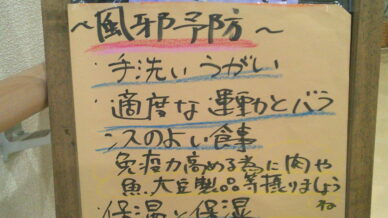 ～風邪予防～
・手洗いうがい
・適度な運動とバラ
ンスのよい食事
免疫力高める為に肉や
魚.大豆製品等摂りましょう
ね
・保温と保湿